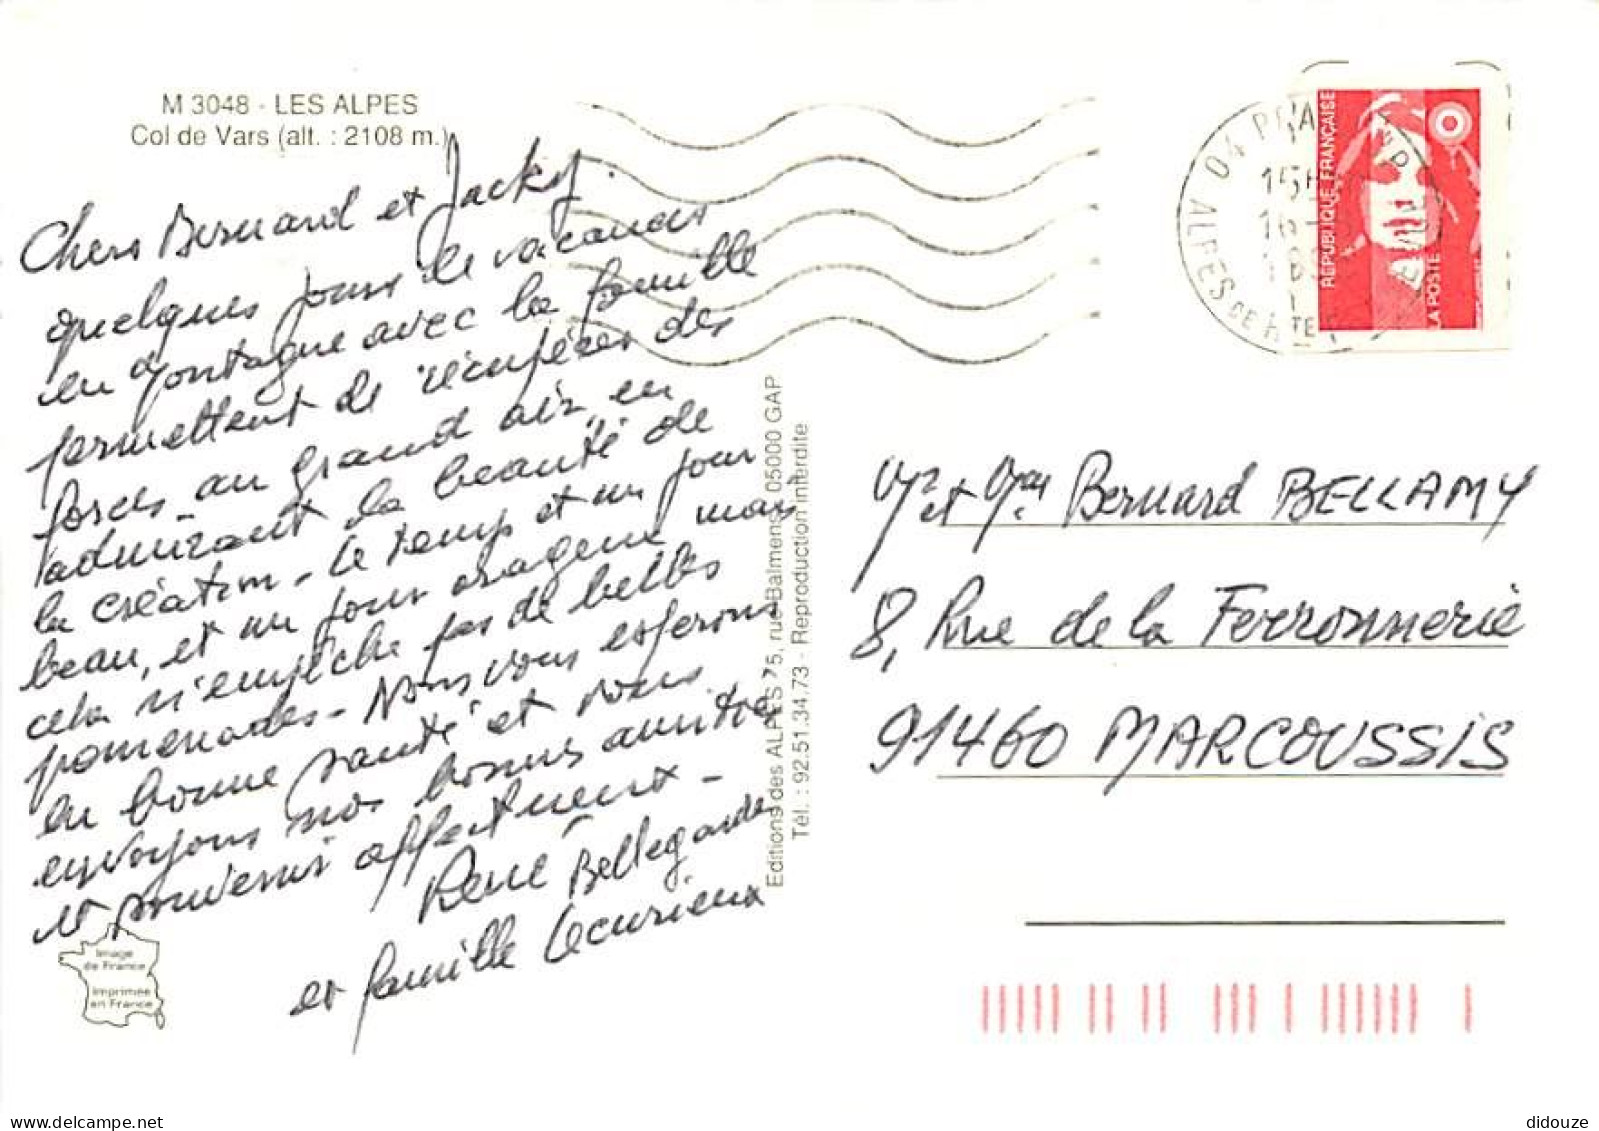 M 3048 - LES ALPES
Col de Vars (alt. : 2108 m.)
Chers Bernard et Jacky.
quelques jours de vacances
en Montagne avec la famille
permettent de récupérer des
forces au grand air, en
admirant la beauté de
la création - le temps est un jour
beau, et un jour orageux mais
cela n'empêche pas de belles
promenades - Nous vous espérons
en bonne santé et vous
envoyons nos bonnes amitiés
et souvenirs affectueux -
René Bellegarde
et famille Lecurieux
Image
de France
Imprimée
en France
Editions des ALPES 75, rue Balmens 05000 GAP
Tél. : 92.51.34.73 - Reproduction interdite
04
15H
16-
ALPES DE HTE
REPUBLIQUE FRANÇAISE
LA POSTE
Mr et Mme Bernard BELLAMY
8, Rue de la Ferronnerie
91460 MARCOUSSIS
didouze